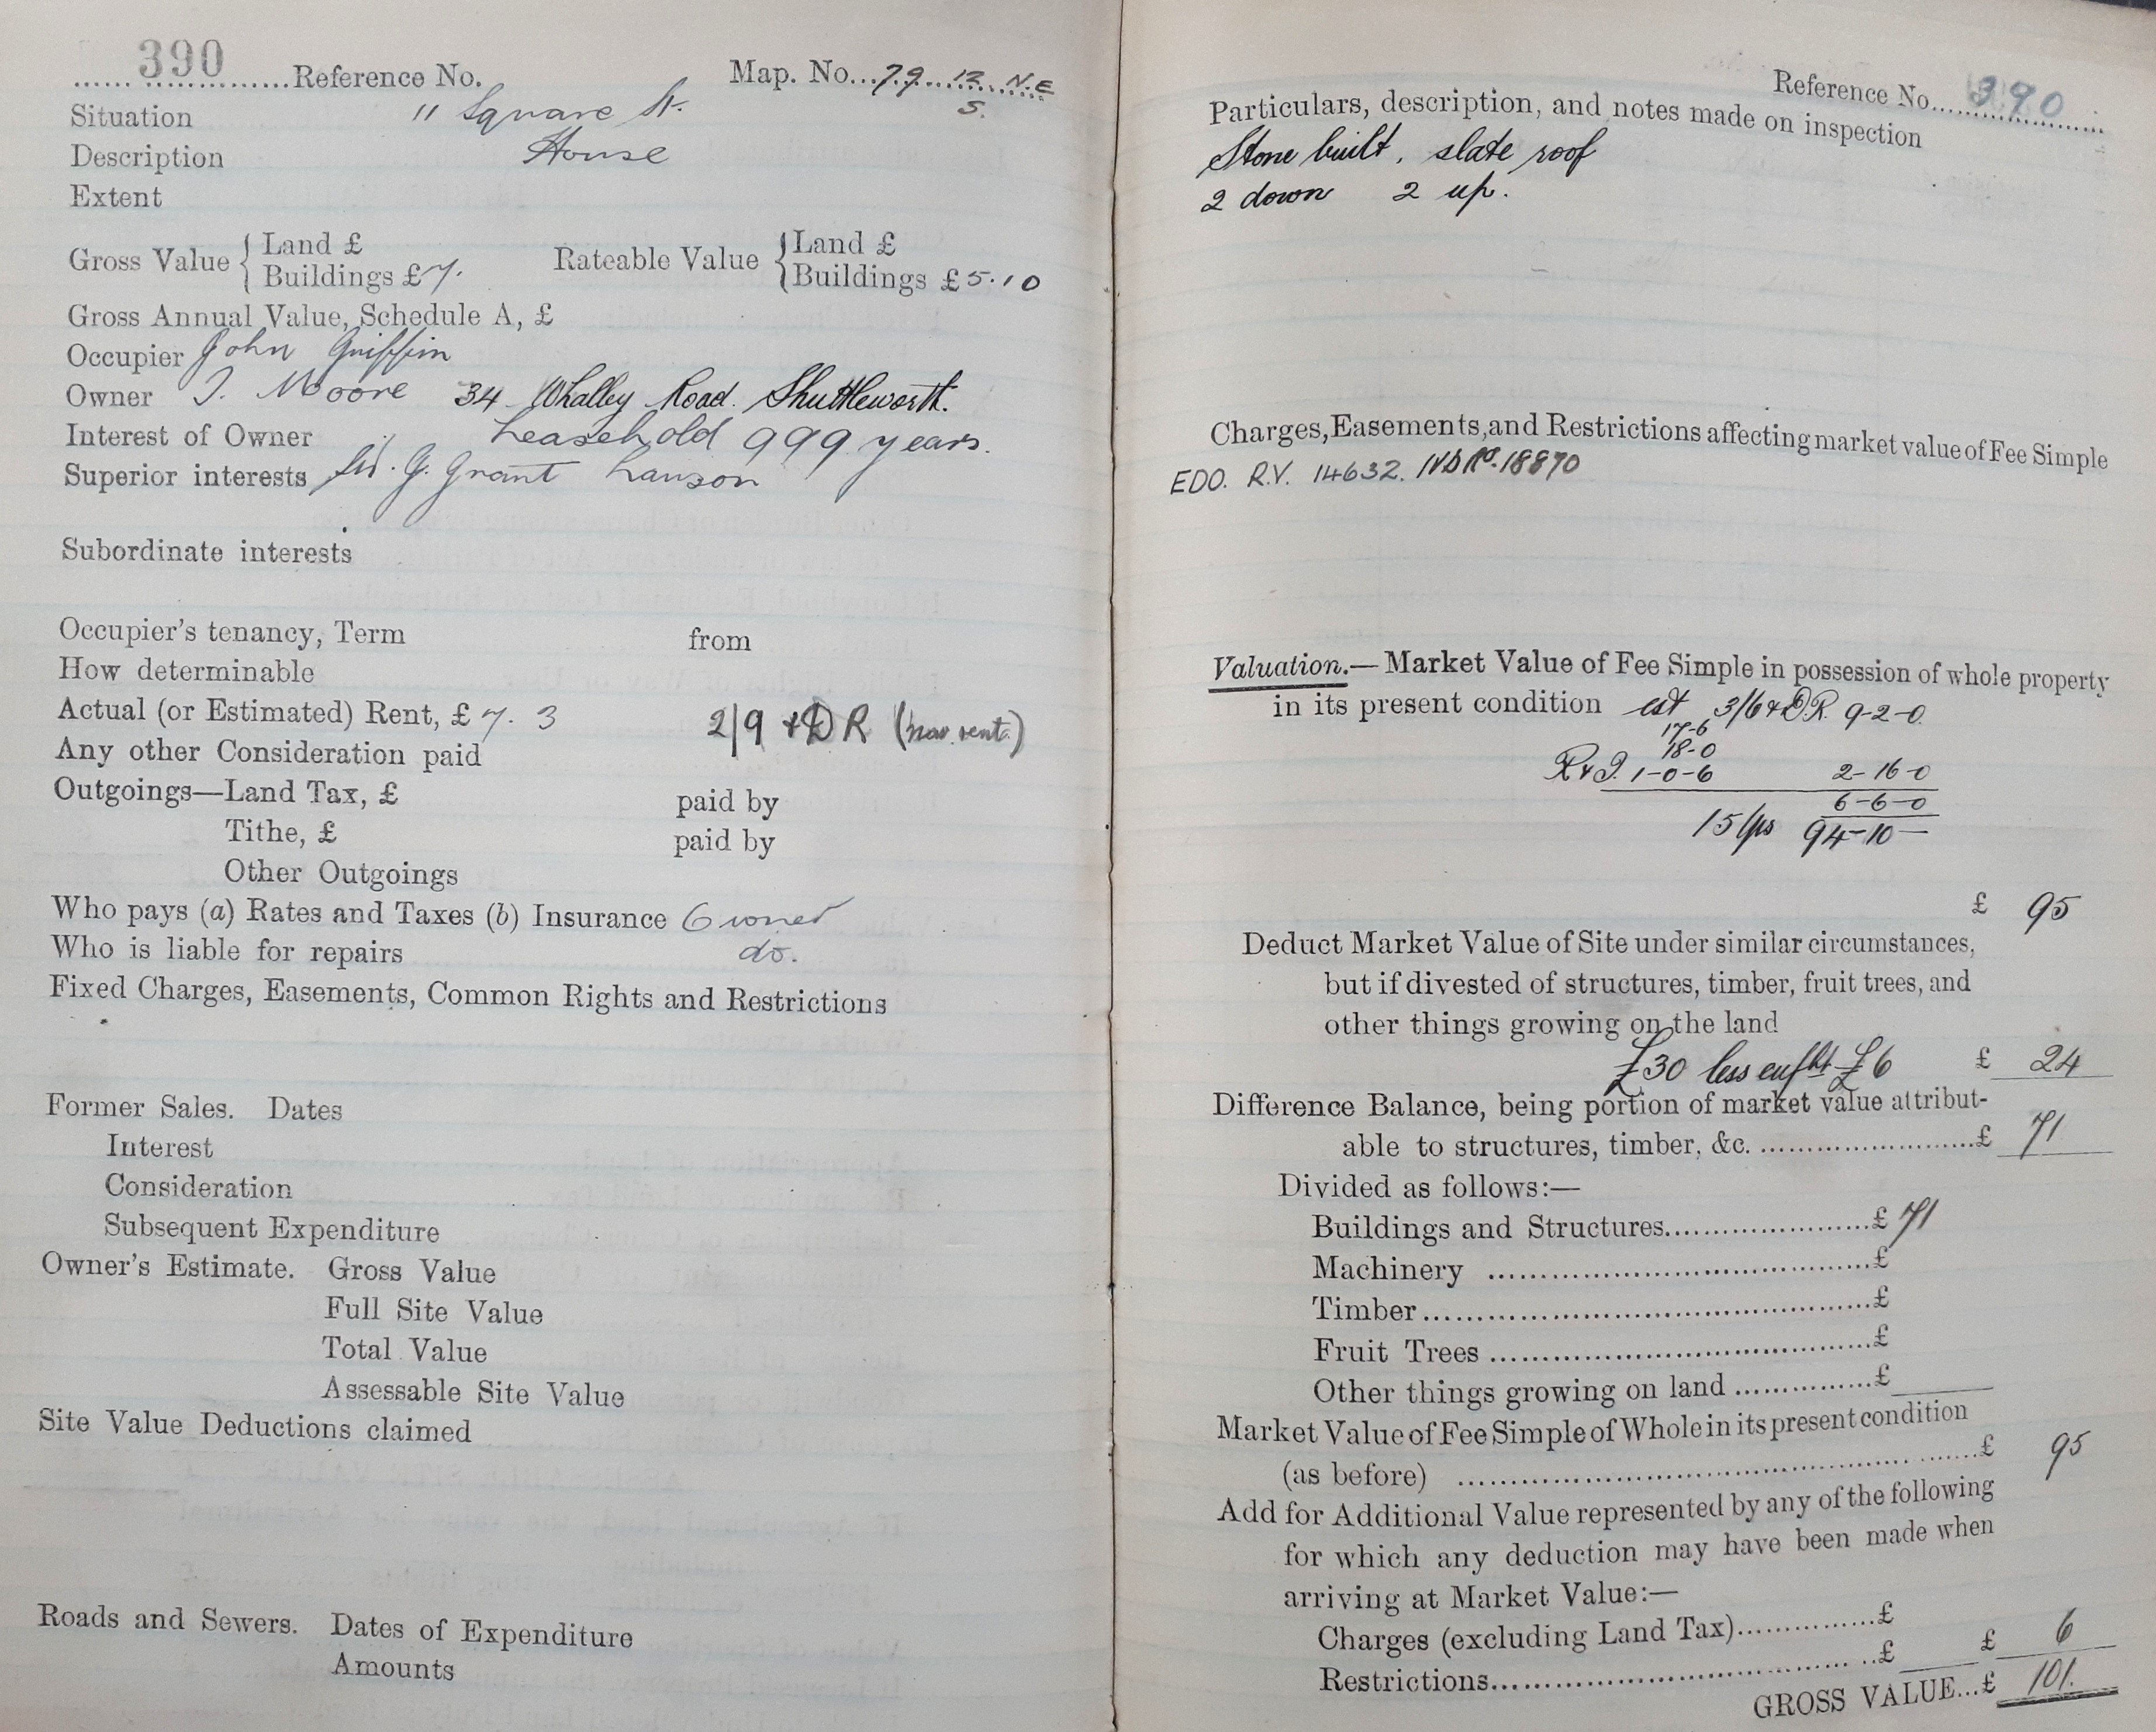 390 Reference No. Map. No. 79 12 N.E
S.
Situation 11 Square St.
Description House
Extent
Gross Value { Land £
Buildings £ 7. Rateable Value { Land £
Buildings £ 5.10
Gross Annual Value, Schedule A, £
Occupier John Griffin
Owner T. Moore 34 Whalley Road. Shuttleworth.
Interest of Owner Leasehold 999 years.
Superior interests G. Grant Lawson
Subordinate interests
Occupier's tenancy, Term from
How determinable
Actual (or Estimated) Rent, £ 7. 3 2/9 + D R (now rent)
Any other Consideration paid
Outgoings—Land Tax, £ paid by
Tithe, £ paid by
Other Outgoings
Who pays (a) Rates and Taxes (b) Insurance Owner
Who is liable for repairs do.
Fixed Charges, Easements, Common Rights and Restrictions
Former Sales. Dates
Interest
Consideration
Subsequent Expenditure
Owner's Estimate. Gross Value
Full Site Value
Total Value
Assessable Site Value
Site Value Deductions claimed
Roads and Sewers. Dates of Expenditure
Amounts
Reference No. 390
Particulars, description, and notes made on inspection
Stone built, slate roof
2 down 2 up.
Charges, Easements, and Restrictions affecting market value of Fee Simple
EDO. R.V. 14632. No. 18870
Valuation.— Market Value of Fee Simple in possession of whole property
in its present condition est 3/6 + D.R. 9-2-0
17-6
18-0
R & I. 1-0-6 2-16-0
6-6-0
15 yps 94-10-
£ 95
Deduct Market Value of Site under similar circumstances,
but if divested of structures, timber, fruit trees, and
other things growing on the land
£30 less £6 £ 24
Difference Balance, being portion of market value attribut-
able to structures, timber, &c. £ 71
Divided as follows:—
Buildings and Structures £ 71
Machinery £
Timber £
Fruit Trees £
Other things growing on land £
Market Value of Fee Simple of Whole in its present condition
(as before) £ 95
Add for Additional Value represented by any of the following
for which any deduction may have been made when
arriving at Market Value:—
Charges (excluding Land Tax) £
Restrictions £ £ 6
GROSS VALUE...£ 101.